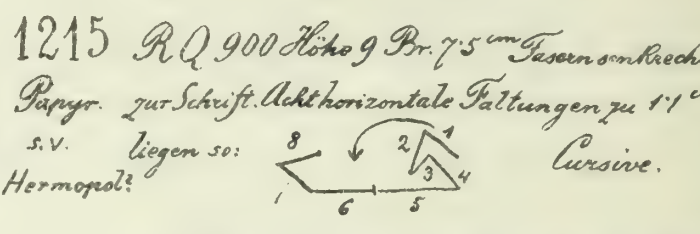 1215 R Q 900 Höhe 9 Br. 7·5 cm Fasern senkrech
Papyr. zur Schrift. Acht horizontale Faltungen zu 1·1 c
s. V. liegen so: 8 2 1 3 4 Cursive.
Hermopol? 6 5